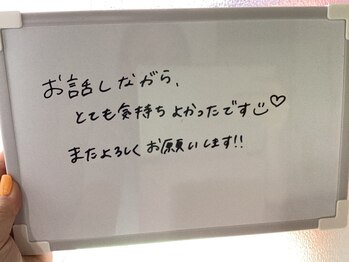 お話しながら、
とても気持ちよかったです☺♡
またよろしくお願いします!!